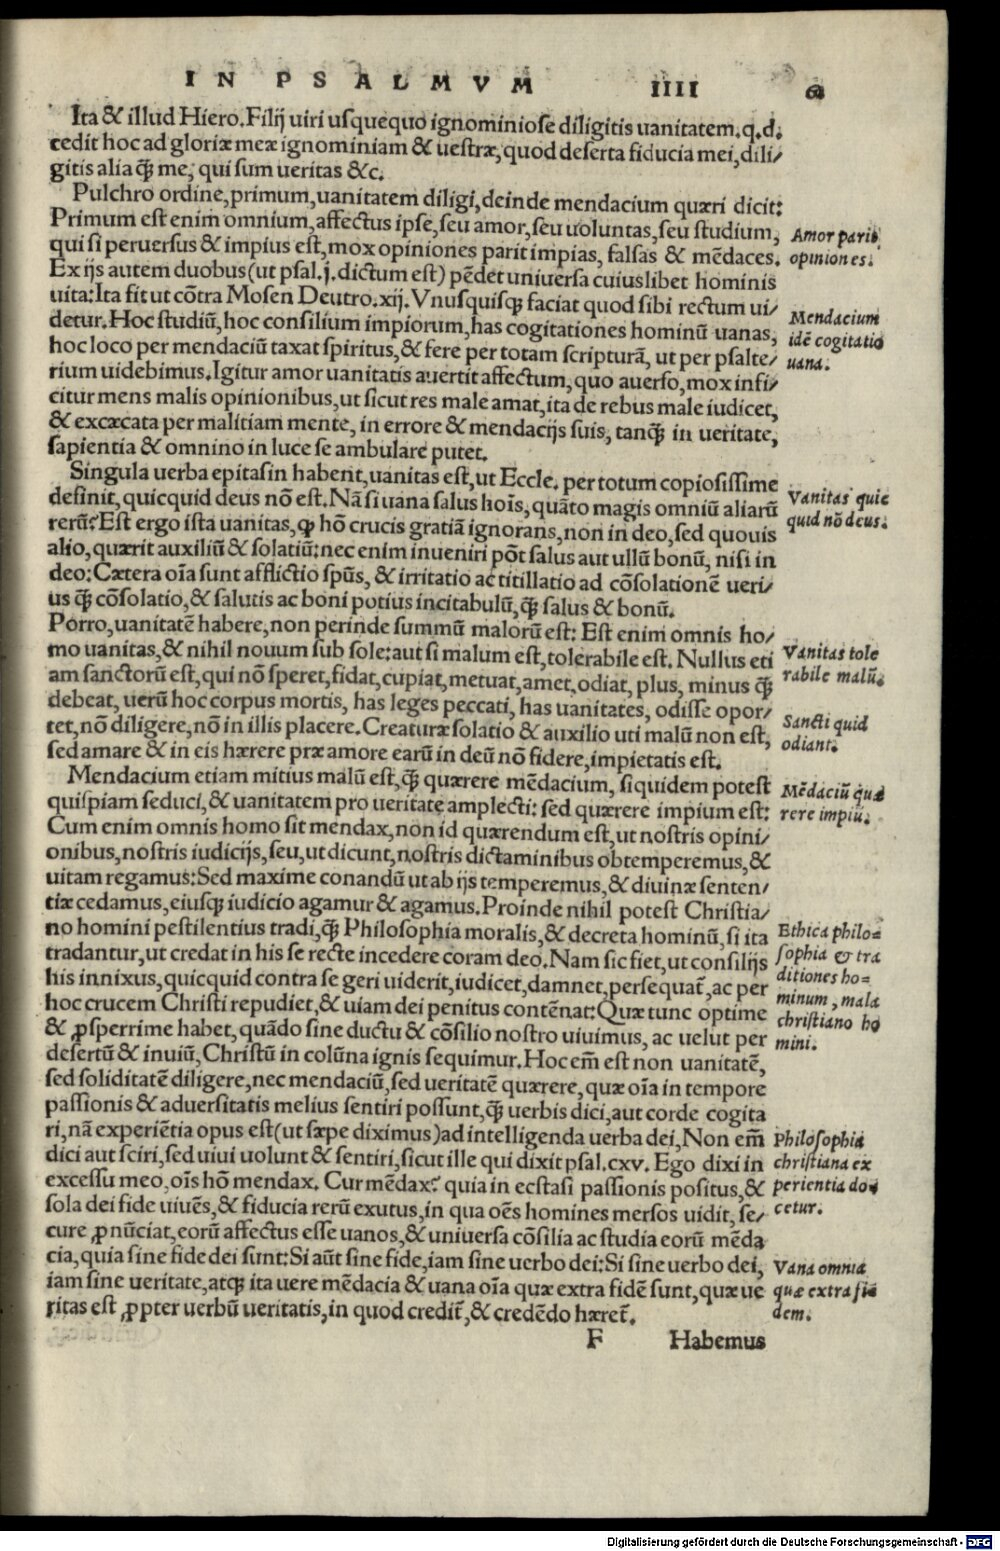 IN PSALMVM IIII 61
Ita & illud Hiero. Filij uiri usquequo ignominiose diligitis uanitatem.q.d.
cedit hoc ad gloriæ meæ ignominiam & uestræ, quod deserta fiducia mei, dili/
gitis alia q̃ me, qui sum ueritas &c.
Pulchro ordine, primum, uanitatem diligi, deinde mendacium quæri dicit:
Primum est enim omnium, affectus ipse, seu amor, seu uoluntas, seu studium,
qui si peruersus & impius est, mox opiniones parit impias, falsas & mẽdaces.
Ex ijs autem duobus (ut psal.j. dictum est) pẽdet uniuersa cuiuslibet hominis
uita: Ita fit ut cõtra Mosen Deutro.xij. Vnusquisq; faciat quod sibi rectum ui/
detur. Hoc studiũ, hoc consilium impiorum, has cogitationes hominũ uanas,
hoc loco per mendaciũ taxat spiritus, & fere per totam scripturã, ut per psalte/
rium uidebimus. Igitur amor uanitatis auertit affectum, quo auerso, mox infi/
citur mens malis opinionibus, ut sicut res male amat, ita de rebus male iudicet,
& excæcata per malitiam mente, in errore & mendacijs suis, tanq̃ in ueritate,
sapientia & omnino in luce se ambulare putet.
Singula uerba epitasin habent, uanitas est, ut Eccle. per totum copiosissime
definit, quicquid deus nõ est. Nã si uana salus hoĩs, quãto magis omniũ aliarũ
rerũ? Est ergo ista uanitas, ꝙ hõ crucis gratiã ignorans, non in deo, sed quouis
alio, quærit auxiliũ & solatiũ: nec enim inueniri põt salus aut ullũ bonũ, nisi in
deo: Cætera oĩa sunt afflictio spũs, & irritatio ac titillatio ad cõsolationẽ ueri/
us q̃ cõsolatio, & salutis ac boni potius incitabulũ, q̃ salus & bonũ.
Porro, uanitatẽ habere, non perinde summũ malorũ est: Est enim omnis ho/
mo uanitas, & nihil nouum sub sole: aut si malum est, tolerabile est. Nullus eti
am sanctorũ est, qui nõ speret, fidat, cupiat, metuat, amet, odiat, plus, minus q̃
debeat, uerũ hoc corpus mortis, has leges peccati, has uanitates, odisse opor/
tet, nõ diligere, nõ in illis placere. Creaturæ solatio & auxilio uti malũ non est,
sed amare & in eis hærere præ amore earũ in deũ nõ fidere, impietatis est.
Mendacium etiam mitius malũ est, q̃ quærere mẽdacium, siquidem potest
quispiam seduci, & uanitatem pro ueritate amplecti: sed quærere impium est:
Cum enim omnis homo sit mendax, non id quærendum est, ut nostris opini/
onibus, nostris iudicijs, seu, ut dicunt, nostris dictaminibus obtemperemus, &
uitam regamus: Sed maxime conandũ ut ab ijs temperemus, & diuinæ senten/
tiæ cedamus, eiusq; iudicio agamur & agamus. Proinde nihil potest Christia/
no homini pestilentius tradi, q̃ Philosophia moralis, & decreta hominũ, si ita
tradantur, ut credat in his se recte incedere coram deo. Nam sic fiet, ut consilijs
his innixus, quicquid contra se geri uiderit, iudicet, damnet, persequat̃, ac per
hoc crucem Christi repudiet, & uiam dei penitus contẽnat: Quæ tunc optime
& ꝓsperrime habet, quãdo sine ductu & cõsilio nostro uiuimus, ac uelut per
desertũ & inuiũ, Christũ in colũna ignis sequimur. Hoc em̃ est non uanitatẽ,
sed soliditatẽ diligere, nec mendaciũ, sed ueritatẽ quærere, quæ oĩa in tempore
passionis & aduersitatis melius sentiri possunt, q̃ uerbis dici, aut corde cogita
ri, nã experiẽtia opus est (ut sæpe diximus) ad intelligenda uerba dei, Non em̃
dici aut sciri, sed uiui uolunt & sentiri, sicut ille qui dixit psal.cxv. Ego dixi in
excessu meo, oĩs hõ mendax. Cur mẽdax? quia in ecstasi passionis positus, &
sola dei fide uiuẽs, & fiducia rerũ exutus, in qua oẽs homines mersos uidit, se/
cure ꝓnũciat, eorũ affectus esse uanos, & uniuersa cõsilia ac studia eorũ mẽda
cia, quia sine fide dei sunt: Si aũt sine fide, iam sine uerbo dei: Si sine uerbo dei,
iam sine ueritate, atq; ita uere mẽdacia & uana oĩa quæ extra fidẽ sunt, quæ ue
ritas est ꝓpter uerbũ ueritatis, in quod credit̃, & credẽdo hæret̃.
F Habemus
Amor parit
opiniones.
Mendacium
idẽ cogitatio
uana.
Vanitas quic
quid nõ deus.
Vanitas tole
rabile malũ.
Sancti quid
odiant.
Mẽdaciũ quæ
rere impiũ.
Ethica philo=
sophia & tra
ditiones ho=
minum, mala
christiano ho
mini.
Philosophia
christiana ex
perientia do=
cetur.
Vana omnia
quæ extra fi=
dem.
Digitalisierung gefördert durch die Deutsche Forschungsgemeinschaft - DFG